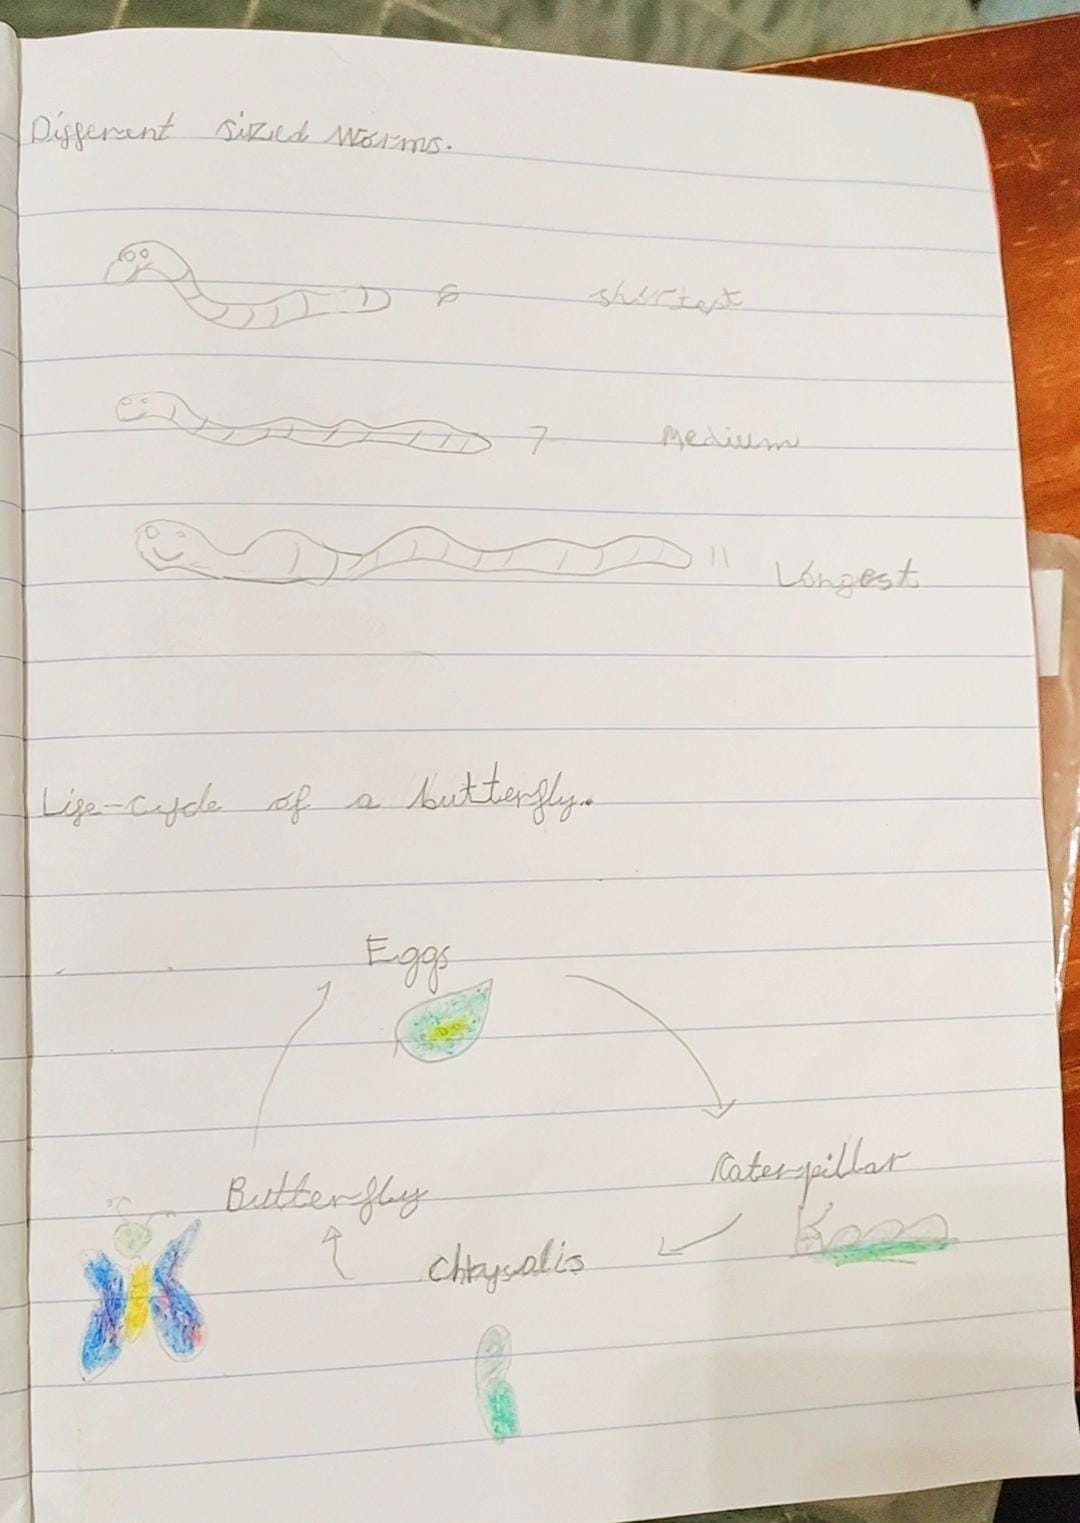 Different sized worms.
6 shortest
7 Medium
11 Longest
Life-cycle of a butterfly.
Eggs
Caterpillar
Butterfly
Chrysalis